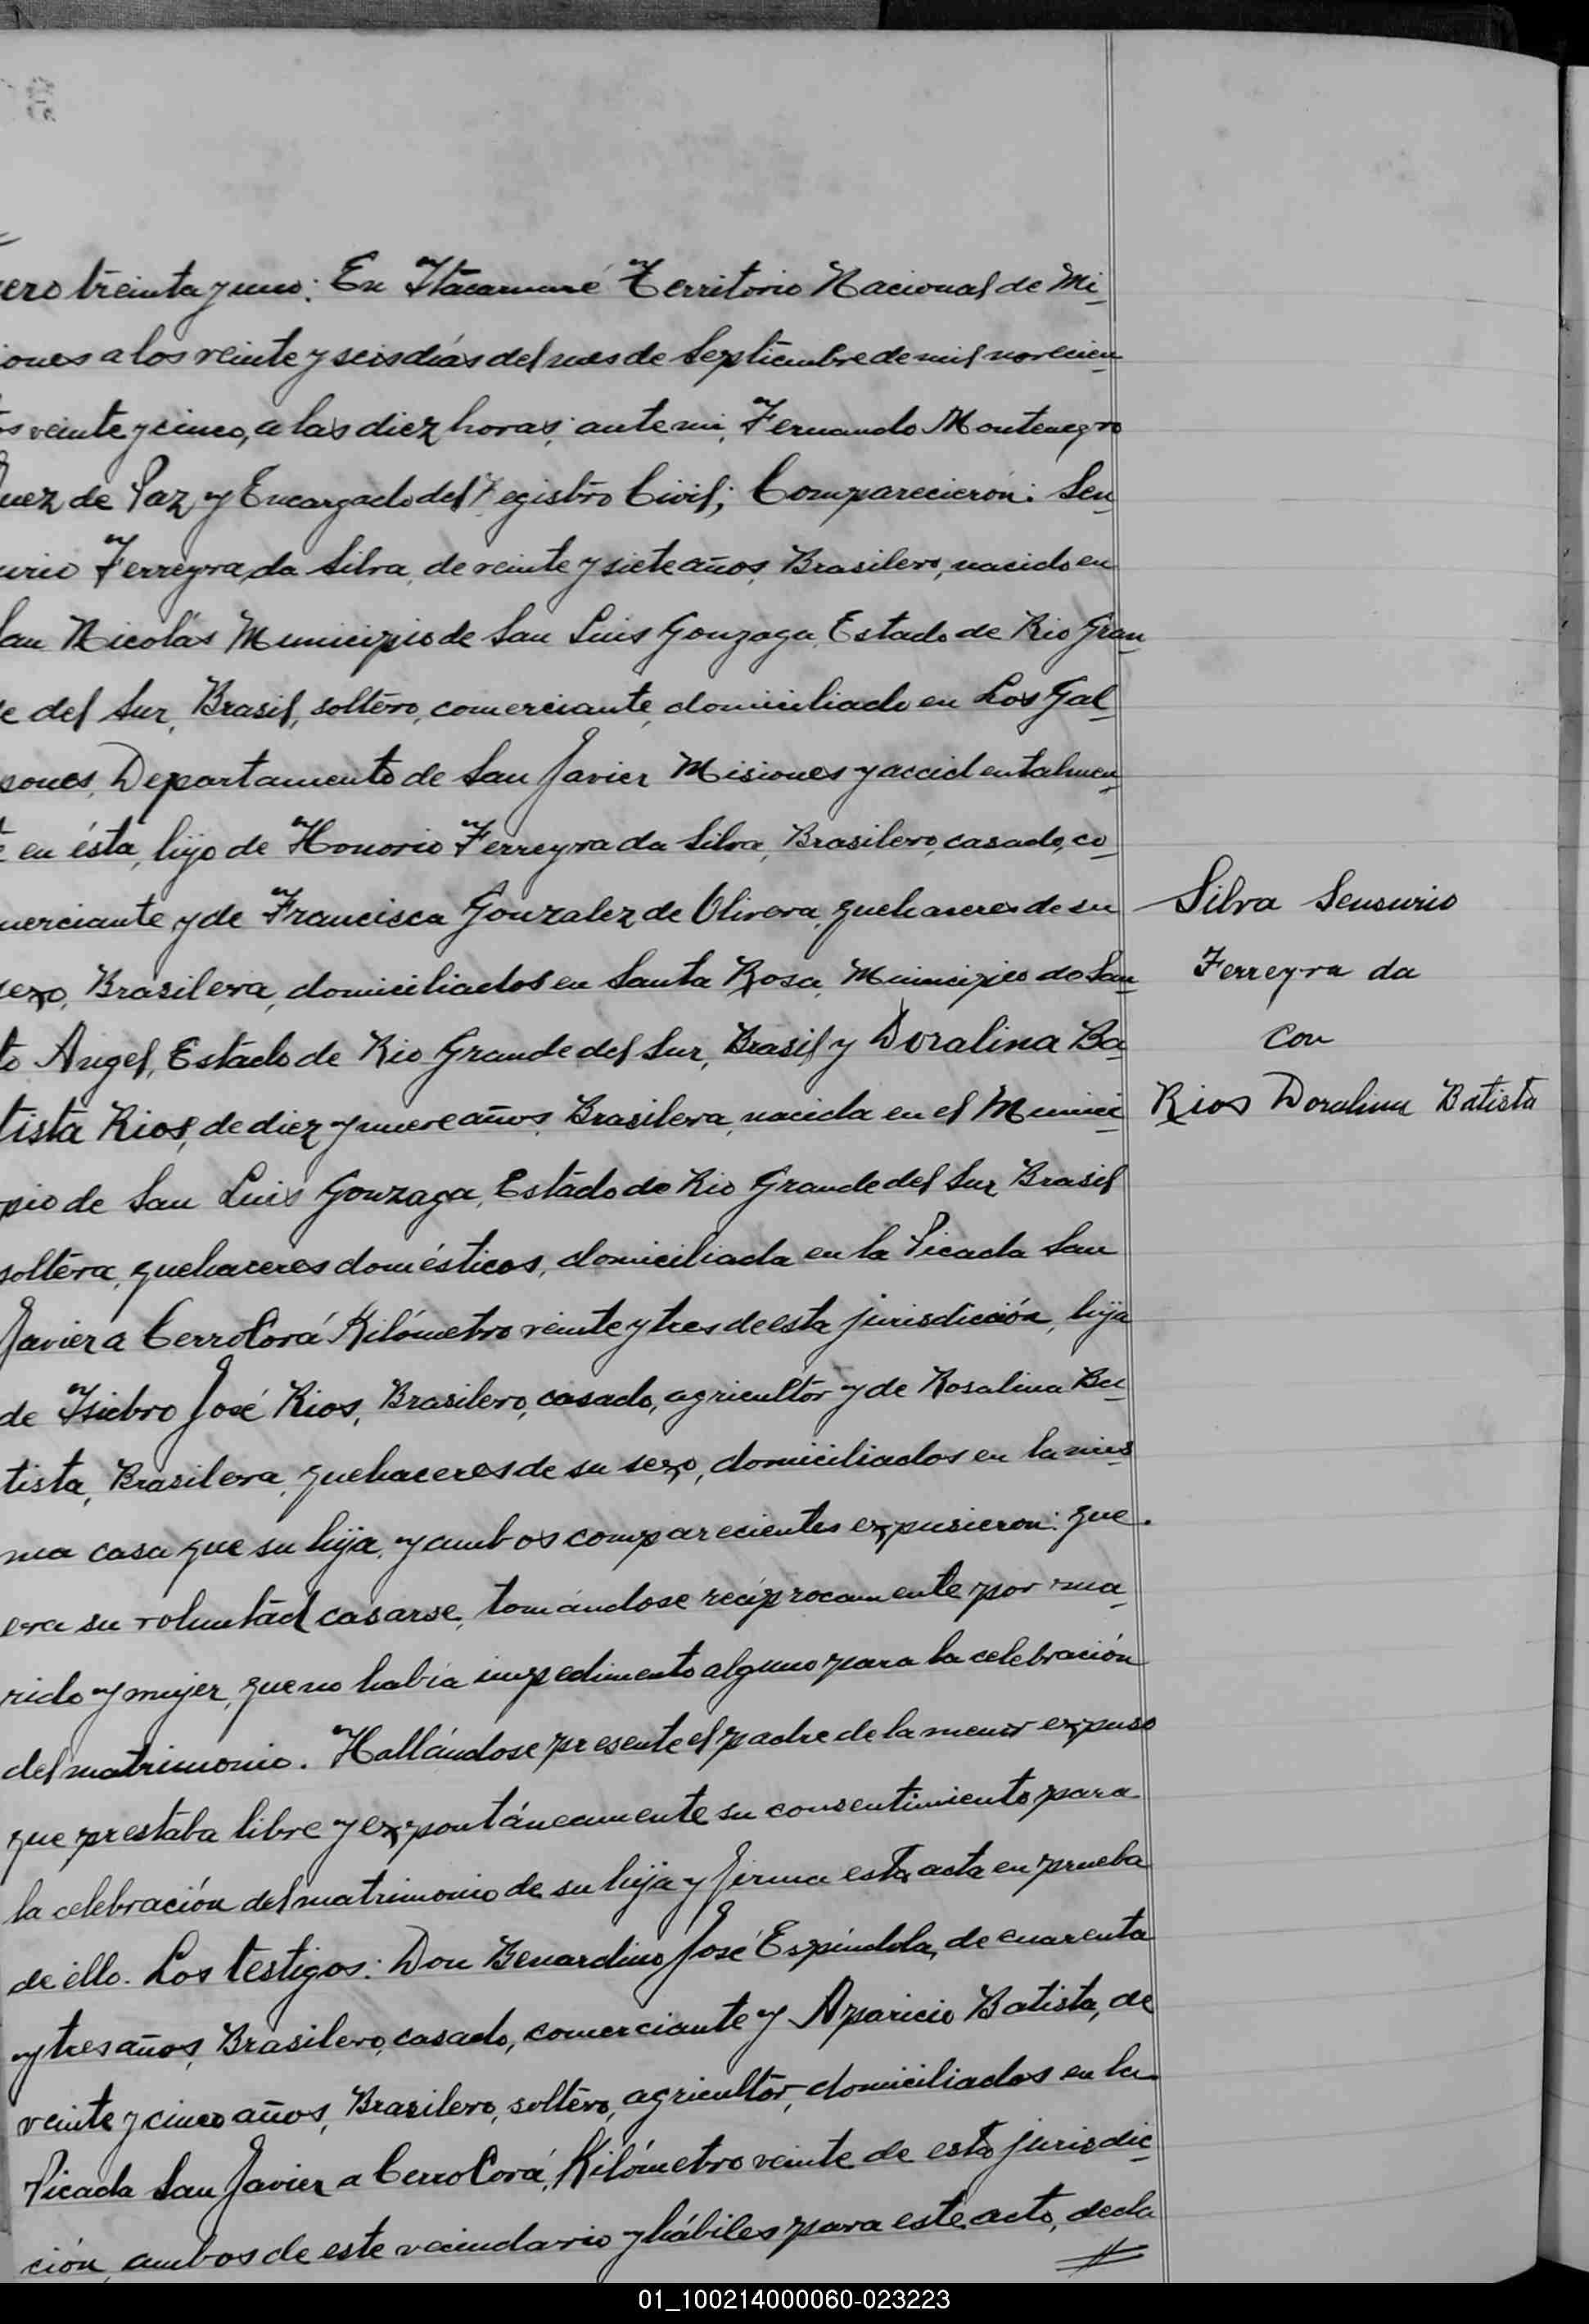 ero treinta y uno: En Itacaruaré Territorio Nacional de Mi-
iones a los veinte y seis días del mes de Septiembre de mil novecien-
s veinte y cinco, a las diez horas; ante mi, Fernando Montenegro
uez de Paz y Encargado del Registro Civil; Comparecieron: Sen-
urio Ferreyra da Silva, de veinte y siete años, Brasilero, nacido en
an Nicolás Municipio de San Luis Gonzaga, Estado de Rio Gran-
e del Sur, Brasil, soltero, comerciante, domiciliado en Los Gal-
pones, Departamento de San Javier Misiones y accidentalmen-
e en ésta, hijo de Honorio Ferreyra da Silva, Brasilero, casado, co-
merciante y de Francisca Gonzalez de Olivera, quehaceres de su
sexo, Brasilera, domiciliados en Santa Rosa, Municipio de San-
to Angel, Estado de Rio Grande del Sur, Brasil y Doralina Ba-
tista Rios, de diez y nueve años, Brasilera, nacida en el Munici-
pio de San Luis Gonzaga, Estado de Rio Grande del Sur Brasil
soltera, quehaceres domésticos, domiciliada en la Picada San
Javier a Cerro Corá Kilómetro veinte y tres de esta jurisdicción, hija
de Isidro José Rios, Brasilero, casado, agricultor y de Rosalina Ba-
tista, Brasilera, quehaceres de su sexo, domiciliados en la mis-
ma casa que su hija, y ambos comparecientes expusieron: que
era su voluntad casarse, tomándose recíprocamente por ma-
rido y mujer, que no había impedimento alguno para la celebración
del matrimonio. Hallándose presente el padre de la menor expuso
que prestaba libre y expontáneamente su consentimiento para
la celebración del matrimonio de su hija y firma esta acta en prueba
de ello. Los testigos: Don Benardino José Espíndola, de cuarenta
y tres años, Brasilero, casado, comerciante y Aparicio Batista, de
veinte y cinco años, Brasilero, soltero, agricultor, domiciliados en la
Picada San Javier a Cerro Corá, Kilómetro veinte de esta jurisdic-
ción, ambos de este vecindario y hábiles para este acto, decla
Silva Sensurio
Ferreyra da
con
Rios Doralina Batista
01_100214000060-023223